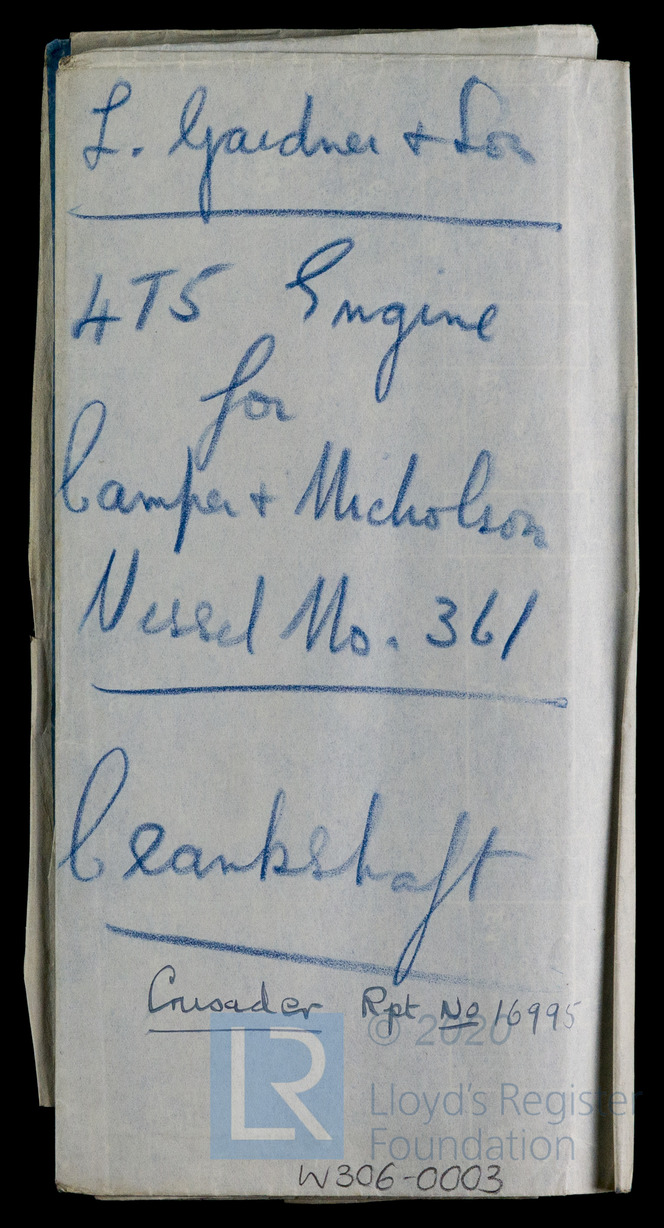 L. Gardner & Son
4T5 Engine
for
Camper & Nicholson
Vessel No. 361
Crankshaft
Crusader Rpt No 16995
© 2020
LR
Lloyd's Register
Foundation
W306-0003